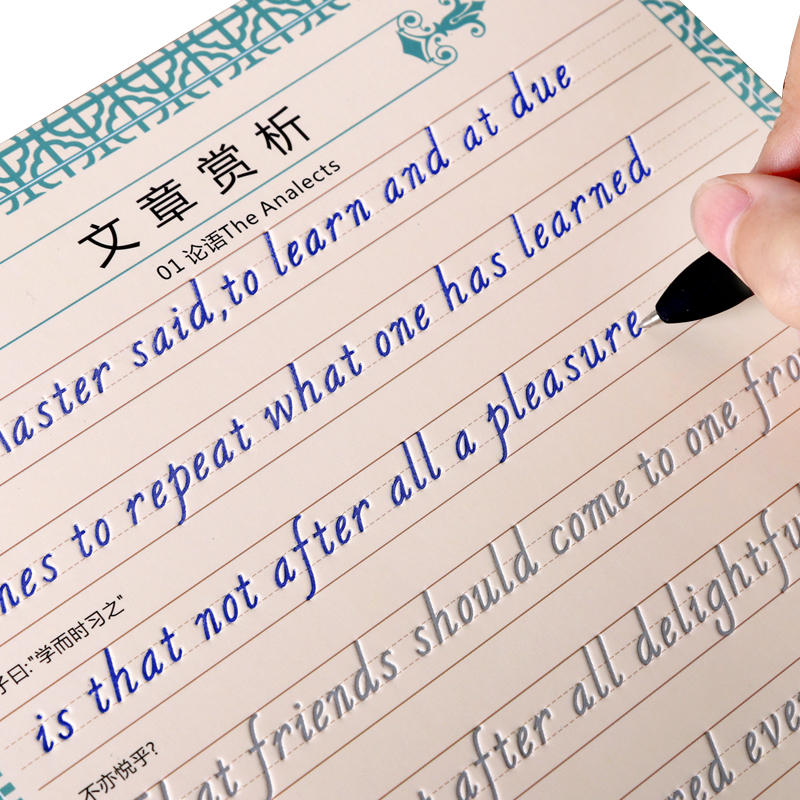 文章赏析
01 论语The Analects
Master said,to learn and at due
to repeat what one has learned
子曰:"学而时习之"
is that not after all a pleasure
不亦悦乎?
That friends should come to one
after all delightful